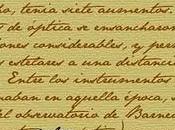 ho, tenía siete aumentos.
T de óptica se ensancharon
ones considerables, y perm
s estelares a una distancia
Entre los instrumentos
naban en aquella época, s
el observatorio de Barnec